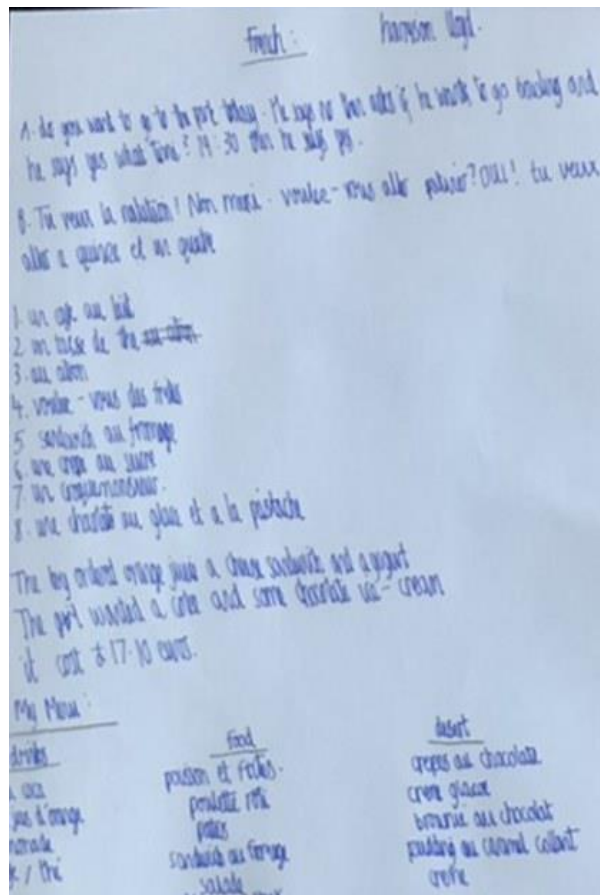 French : harrison lloyd.
A. do you want to go to the port today. He says no then asks if he wants to go bowling and
he says yes what time? 14:30 then he says yes.
B. Tu veux la natation! Non merci. voulez-vous aller? OUI! tu veux
aller a quinze et un quate
1. un cafe au lait
2. un tasse de the
3. au citron
4. voulez-vous des frites
5. sandwich au fromage
6. une crepe au sucre
7. un croquemonsieur.
8. une chocolate au glace et a la pistache
The boy ordered orange juice a cheese sandwich and a yogurt
The girl wanted a coke and some chocolate ice-cream
it cost 17.10 euros.
My Menu :
drinks food desert
coca poission et frites. crepes au chocolate
jus d'orange poulette roti creme glacee
monade pates brownie au chocolat
/ thé sandwich au fromage pudding au caramel collant
salade creme